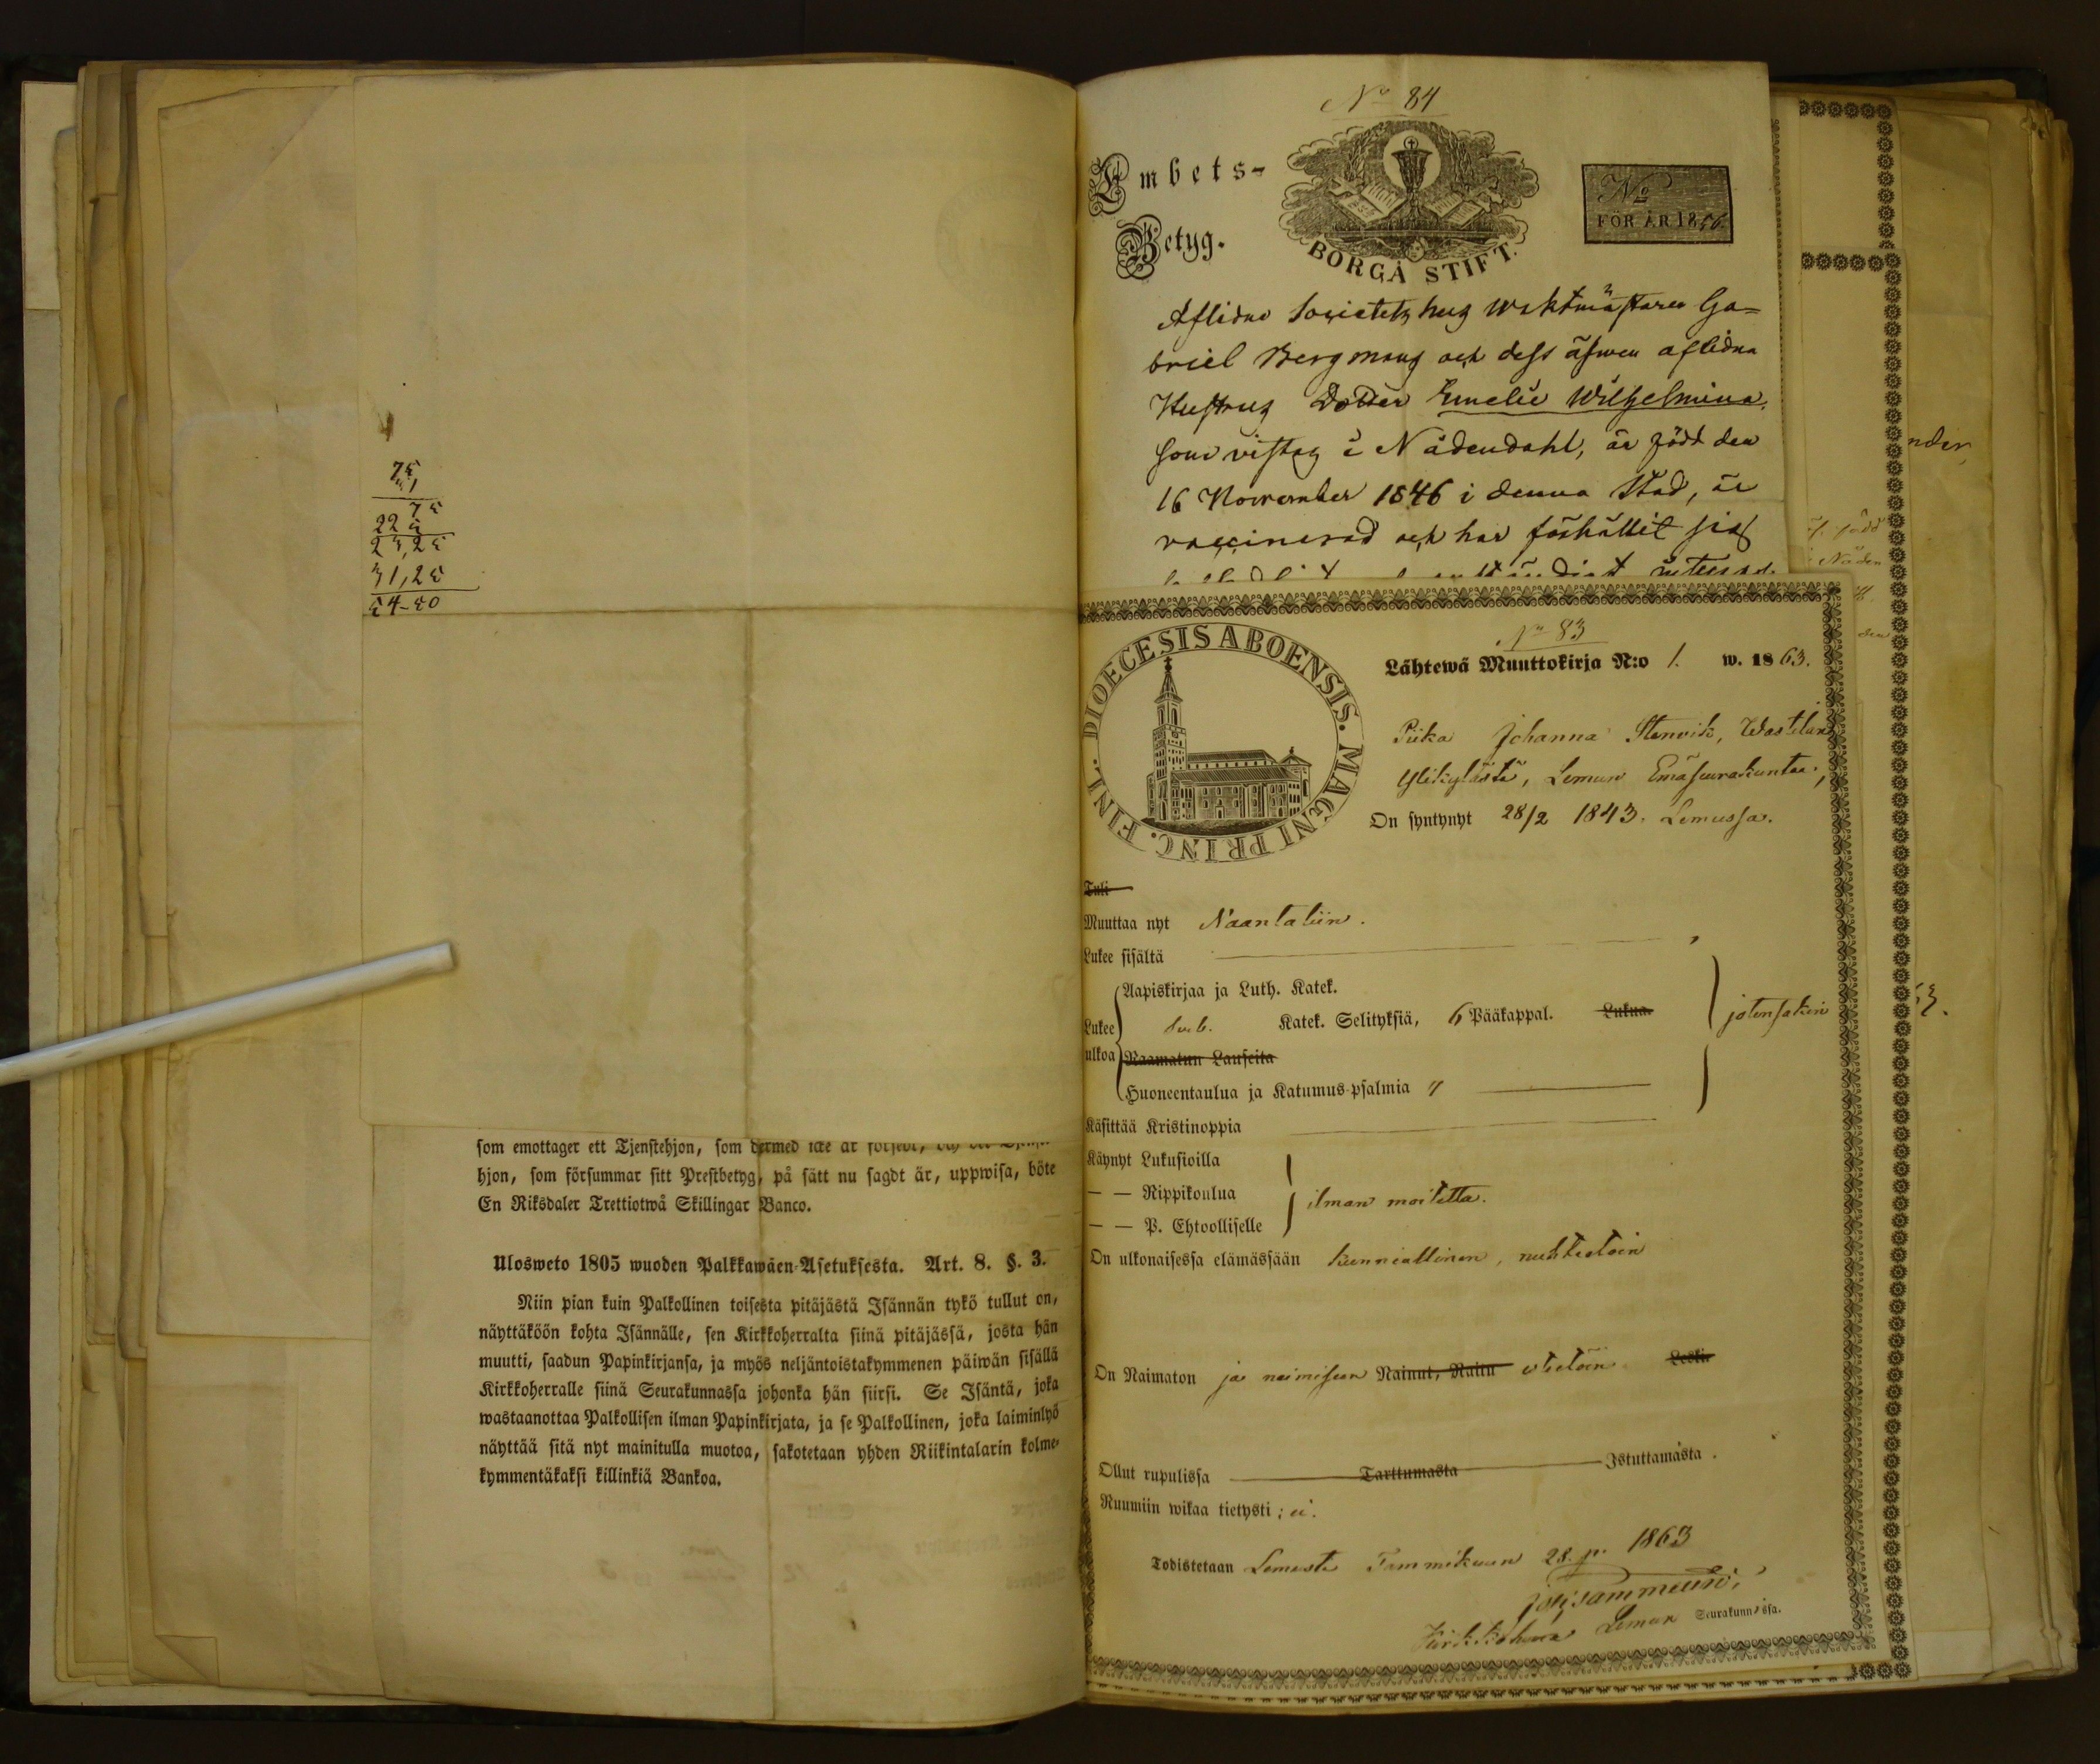 75,
75
22 5
23,25
31,25
54-50
som emottager ett Tjenstehjon, som dermed icke är försedt,
hjon, som försummar sitt Prestbetyg, på sätt nu sagdt är, uppwisa, böte
En Riksdaler Trettiotwå Skillingar Banco.
Ulosweto 1805 wuoden Palkkawäen-Asetuksesta. Art. 8. §. 3.
Niin pian kuin Palkollinen toisesta pitäjästä Isännän tykö tullut on,
näyttäköön kohta Isännälle, sen Kirkkoherralta siinä pitäjässä, josta hän
muutti, saadun Papinkirjansa, ja myös neljäntoistakymmenen päiwän sisällä
Kirkkoherralle siinä Seurakunnassa johonka hän siirsi. Se Isäntä, joka
wastaanottaa Palkollisen ilman Papinkirjata, ja se Palkollinen, joka laiminlyö
näyttää sitä nyt mainitulla muotoa, sakotetaan yhden Riikintalarin kolme-
kymmentäkaksi killinkiä Bankoa.
No 84
Embets-
Betyg.
BORGÅ STIFT.
No
FÖR ÅR 1856.
Aflidne Societetshus Waktmästaren Ga=
briel Bergmans och dess äfwen aflidna
Hustrus Dotter Emelie Wilhelmina,
som vistas i Nådendahl, är född den
16 November 1846 i denna Stad, är
vaccinerad och har förhållit sig
DIOECESIS ABOENSIS. MAGNI PRINC. FINL.
No 83
Lähtewä Muuttokirja N:o 1. w. 1863.
Piika Johanna Stenvik, Wastilan
Ylikylästä, Lemun Emäseurakuntaa;
On syntynyt 28/2 1843. Lemussa.
Tuli
Muuttaa nyt Naantaliin.
Lukee sisältä
Aapiskirjaa ja Luth. Katek.
Lukee Katek. Selityksiä, 6 Pääkappal. Lukua. jotensakin
ulkoa Raamatun Lauseita
Huoneentaulua ja Katumus-psalmia 7
Käsittää Kristinoppia
Käynyt Lukusioilla
— — Rippikoulua ilman moitetta.
— — P. Ehtoolliselle
On ulkonaisessa elämässään kunniallinen, nuhteetoin
On Naimaton ja naimiseen Nainut, Naitu esteetöin Leski
Ollut rupulissa Tarttumasta Istuttamasta.
Ruumiin wikaa tietysti; ei.
Todistetaan Lemusta Tammikuun 28. p. 1863
Kirkkoherra Lemun Seurakunnassa.
nder,
född
Nåden
den
63.